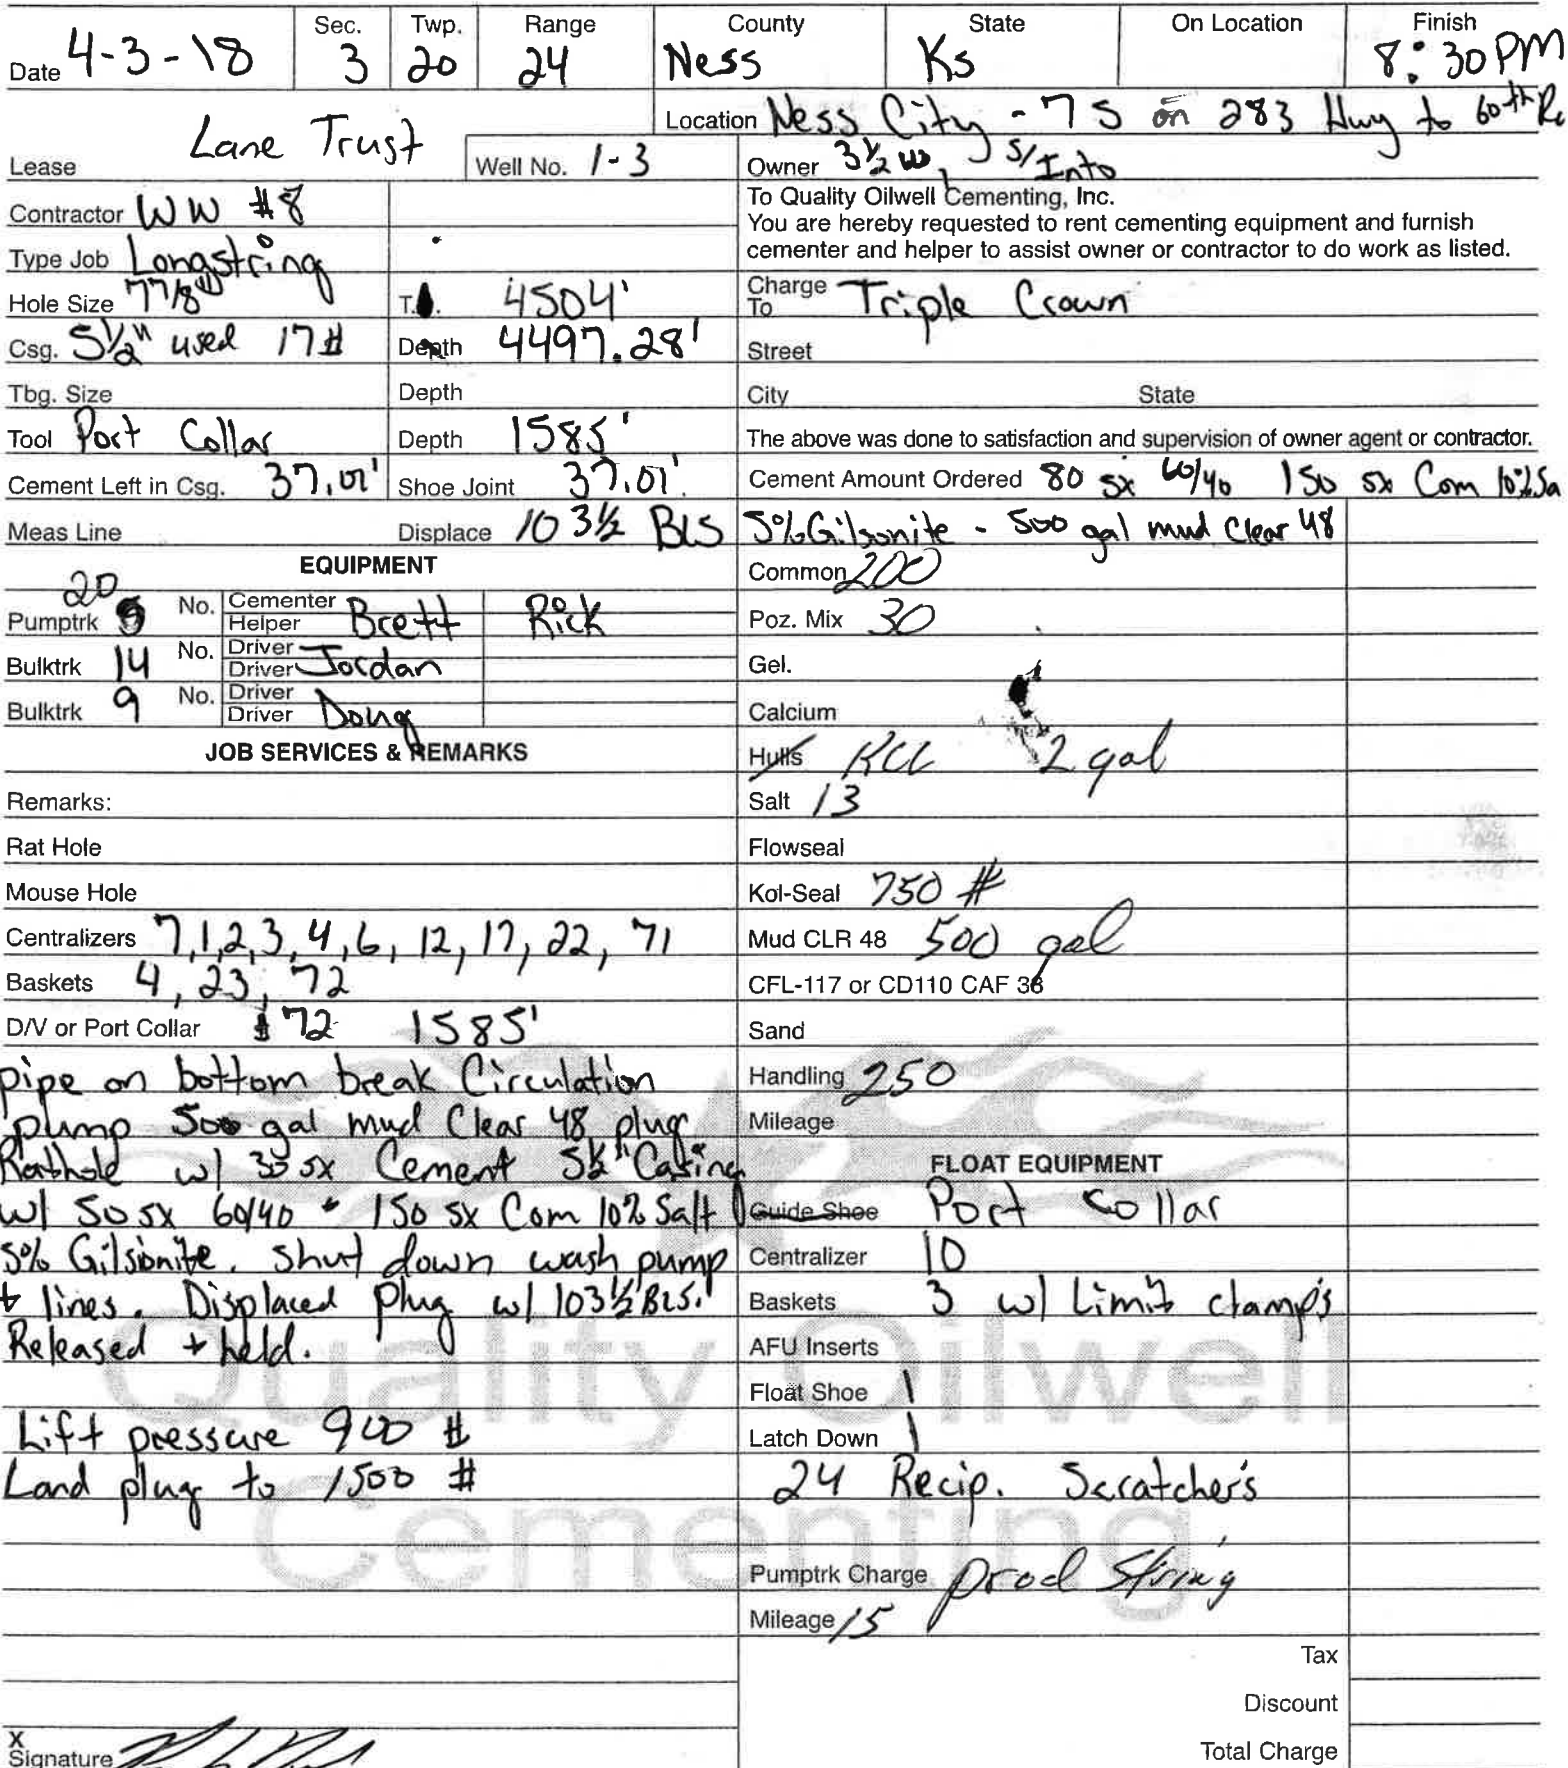 Date 4-3-18 Sec. 3 Twp. 20 Range 24 County Ness State Ks On Location Finish 8:30 PM
Lease Lane Trust Well No. 1-3
Location Ness City - 7 S on 283 Hwy to 60th
Owner 3½ W, S/Into
Contractor WW #8
Type Job Longstring
Hole Size 7 7/8" T. 4504'
Csg. 5½" used 17# Depth 4497.28'
Tbg. Size Depth
Tool Port Collar Depth 1585'
Cement Left in Csg. 37.01' Shoe Joint 37.01'
Meas Line Displace 103½ BLS
To Quality Oilwell Cementing, Inc.
You are hereby requested to rent cementing equipment and furnish
cementer and helper to assist owner or contractor to do work as listed.
Charge To Triple Crown
Street
City State
The above was done to satisfaction and supervision of owner agent or contractor.
Cement Amount Ordered 80 sx 60/40 150 sx Com 10% Sa
5% Gilsonite - 500 gal mud Clear 48
EQUIPMENT
Pumptrk 20 No. Cementer Helper Brett Rick
Bulktrk 14 No. Driver Driver Jordan
Bulktrk 9 No. Driver Driver Doug
JOB SERVICES & REMARKS
Remarks:
Rat Hole
Mouse Hole
Centralizers 7,1,2,3,4,6,12,17,22,71
Baskets 4, 23, 72
D/V or Port Collar 72 1585'
pipe on bottom break Circulation
pump 500 gal mud Clear 48 plug
Rathole w/ 30 sx Cement 5½" Casing
w/ 50 sx 60/40 + 150 sx Com 10% Salt
5% Gilsionite. Shut down wash pump
+ lines. Displaced plug w/ 103½ BLS.
Released + held.
Lift pressure 900 #
Land plug to 1500 #
X
Signature
Common 200
Poz. Mix 30
Gel.
Calcium
Hulls KCL 2 gal
Salt 13
Flowseal
Kol-Seal 750 #
Mud CLR 48 500 gal
CFL-117 or CD110 CAF 38
Sand
Handling 250
Mileage
FLOAT EQUIPMENT
Guide Shoe Port Collar
Centralizer 10
Baskets 3 w/ Limit clamp's
AFU Inserts
Float Shoe 1
Latch Down 1
24 Recip. Scratcher's
Pumptrk Charge prod String
Mileage 15
Tax
Discount
Total Charge
Quality Oilwell
Cementing